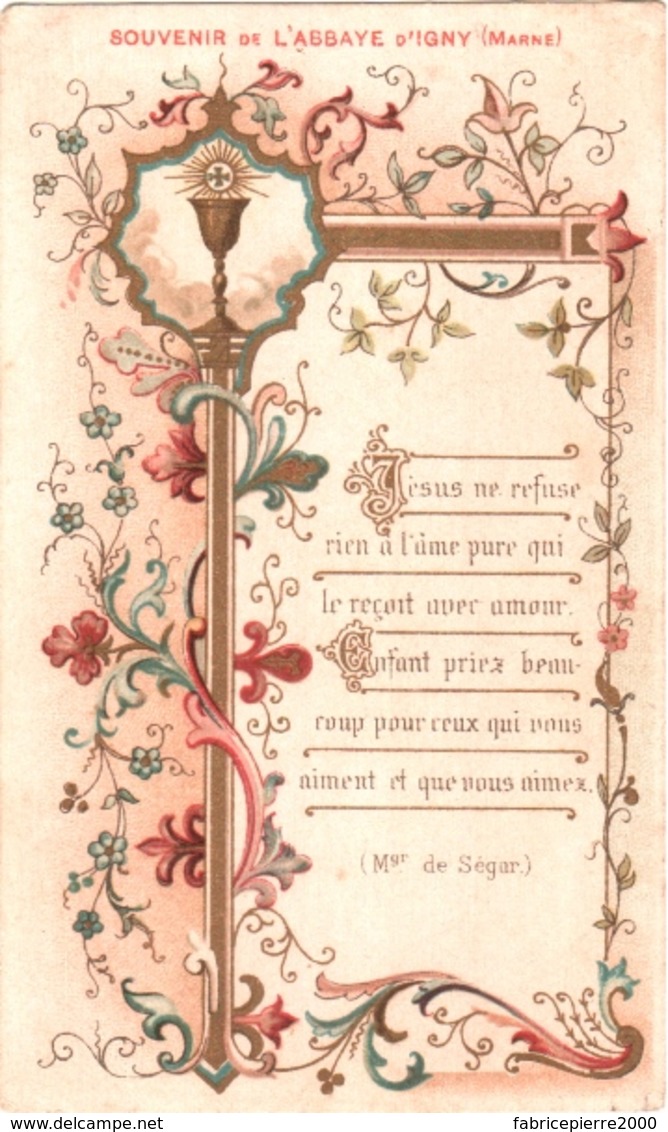 SOUVENIR DE L'ABBAYE D'IGNY (MARNE)
Jésus ne refuse
rien à l'âme pure qui
le reçoit avec amour.
Enfant priez beau-
coup pour ceux qui vous
aiment et que vous aimez.
(Mgr de Ségur.)
www.delcampe.net
fabricepierre2000